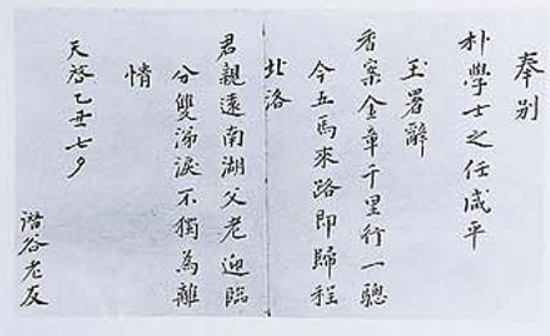 奉別
朴學士之任咸平
玉署辭
香案金章千里行一驄
今五馬來路即歸程
北洛
君親遠南湖父老迎臨
分雙涕淚不獨為離
情
天啓乙丑七夕
潛谷老友